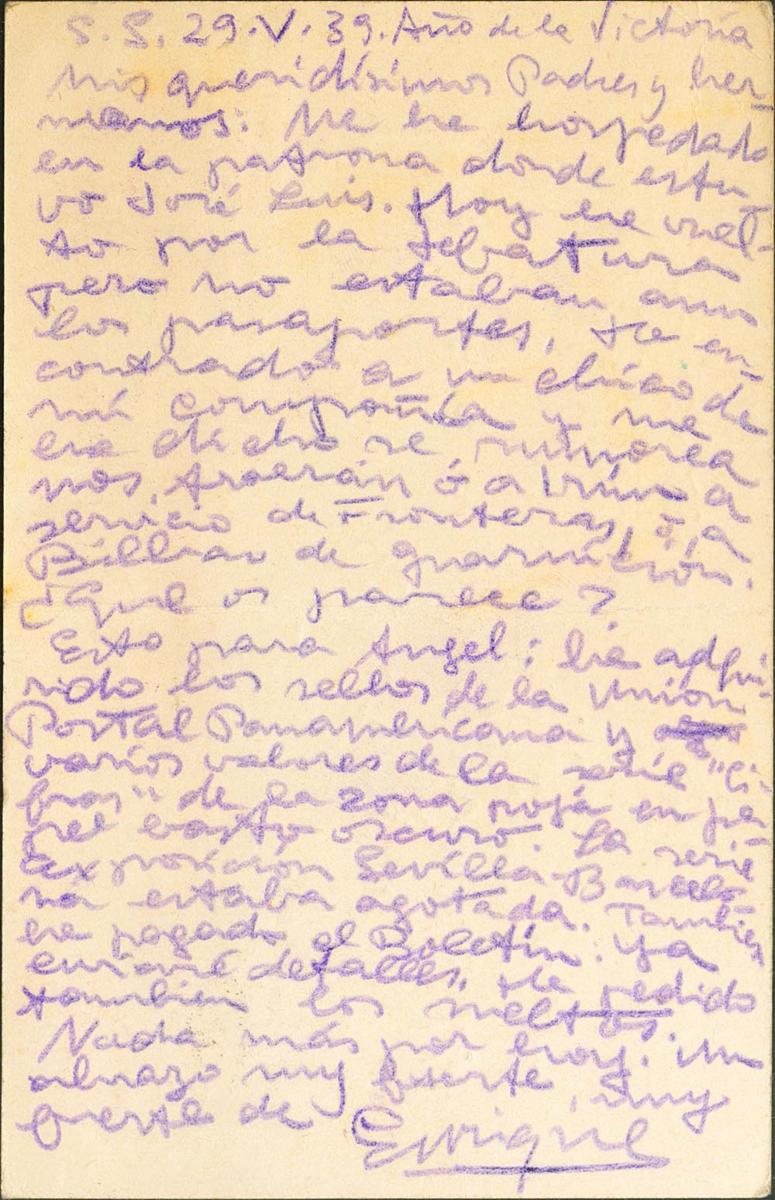 S.S. 29.V.39. Año de la Victoria
Mis queridísimos Padres y her-
manos: Me he hospedado
en la patrona donde estu-
vo José Luis. Hoy he vuel-
to por la Jefatura
pero no estaban aun
los pasaportes. He en-
contrado a un chico de
mi compañía y me
ha dicho se rumorea
nos traerán ó a Irún a
servicio de Fronteras, ó a
Bilbao de guarnición.
¿Qué os parece?
Esto para Angel: he adqui-
rido los sellos de la Unión
Postal Panamericana y
varios valores de la serie "ci-
fras" de la zona roja en pa-
pel basto oscuro. La serie
Exposición Sevilla-Barcelo-
na estaba agotada. Tambien
he pagado el Boletín. Ya
enviaré detalles. He pedido
tambien los sueltos.
Nada más por hoy. Un
abrazo muy fuerte, muy
fuerte de
Enrique